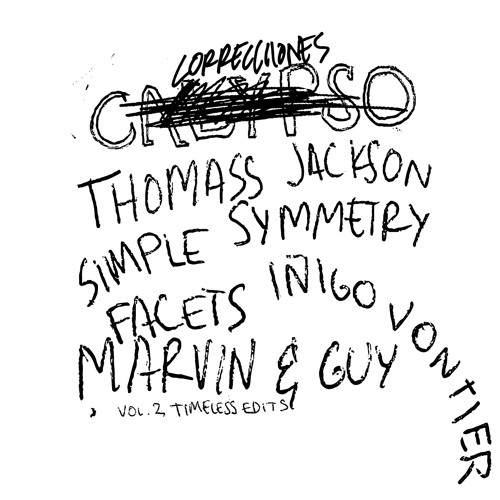 CORRECCIONES
CALYPSO
THOMASS JACKSON
SIMPLE SYMMETRY
FACETS IÑIGO VONTIER
MARVIN & GUY
VOL. 2, TIMELESS EDITS